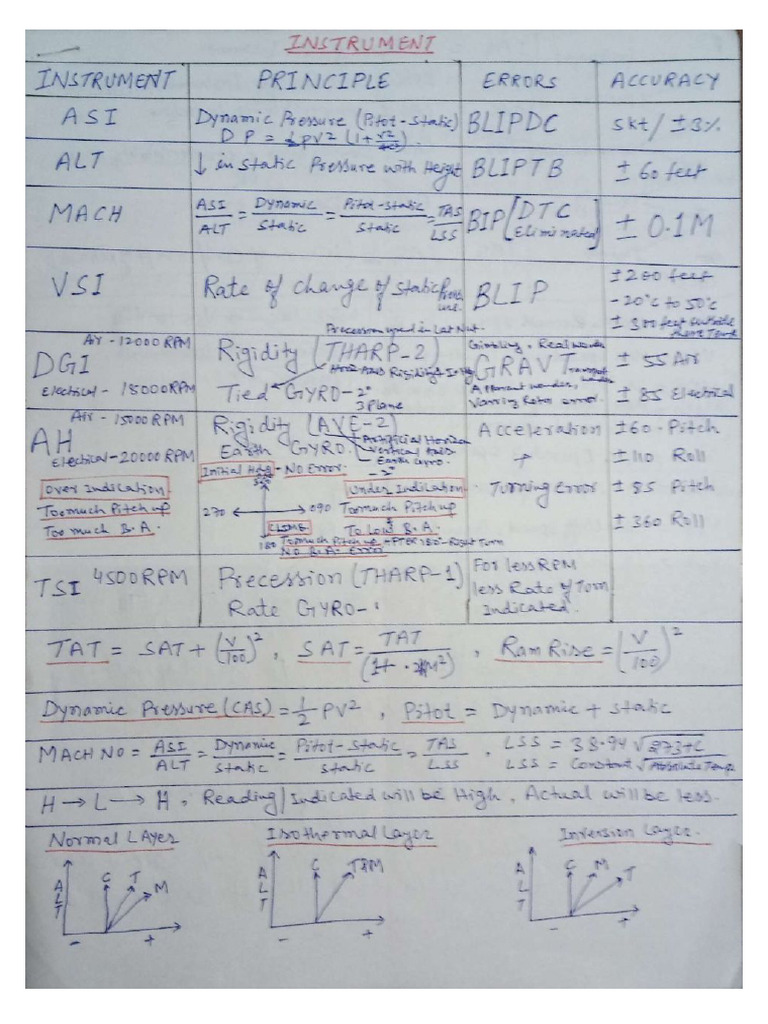 INSTRUMENT
INSTRUMENT PRINCIPLE ERRORS ACCURACY
ASI Dynamic Pressure (Pitot-Static) BLIPDC 5kt/±3%
DP = ½ρV²
ALT ↓ in static Pressure with Height BLIPTB ±60 feet
MACH ASI/ALT = Dynamic/Static = Pitot-Static/Static = TAS/LSS BIP [DTC Eliminated] ±0.1M
VSI Rate of change of static Pressure. BLIP ±200 feet
-20°c to 50°c
±300 feet outside
Precession used in Lat Nut.
Air - 12000 RPM
DGI Rigidity (THARP-2) GRAVT ±55 Air
Gimbling, Real wander
Transport wander
Electical - 18000RPM Tied GYRO-2° ±85 Electrical
3 Plane
Apparent wander,
Random error.
Air - 15000 RPM
AH Rigidity (AVE-2) Acceleration ±60 · Pitch
Artificial Horizon
Vertical axis
Earth Gyro.
Electical - 20000 RPM Earth GYRO. + ±110 Roll
Initial Hdg - NO Error.
360
Over Indication Under Indication Turning Error ±85 Pitch
Too much Pitch up 270 090 Too much Pitch up
Too much B.A. CLIMB To Low B.A. ±360 Roll
180 Too much Pitch up - AFTER 180° - Right Turn
No B.A. Error
TSI 4500RPM Precession (THARP-1) For less RPM
Rate GYRO-1 less Rate of Turn
Indicated.
TAT = SAT + (V/100)², SAT = TAT/(1+.2KM²), Ram Rise = (V/100)²
Dynamic Pressure (CAS) = ½PV², Pitot = Dynamic + Static
MACH NO = ASI/ALT = Dynamic/Static = Pitot-Static/Static = TAS/LSS. LSS = 38.94√273+C
LSS = Constant√Absolute Temp
H → L → H, Reading/Indicated will be High, Actual will be less.
Normal LAYER Isothermal Layer Inversion Layer.
ALT C T M
- +
ALT C T&M
- +
ALT C M T
- +